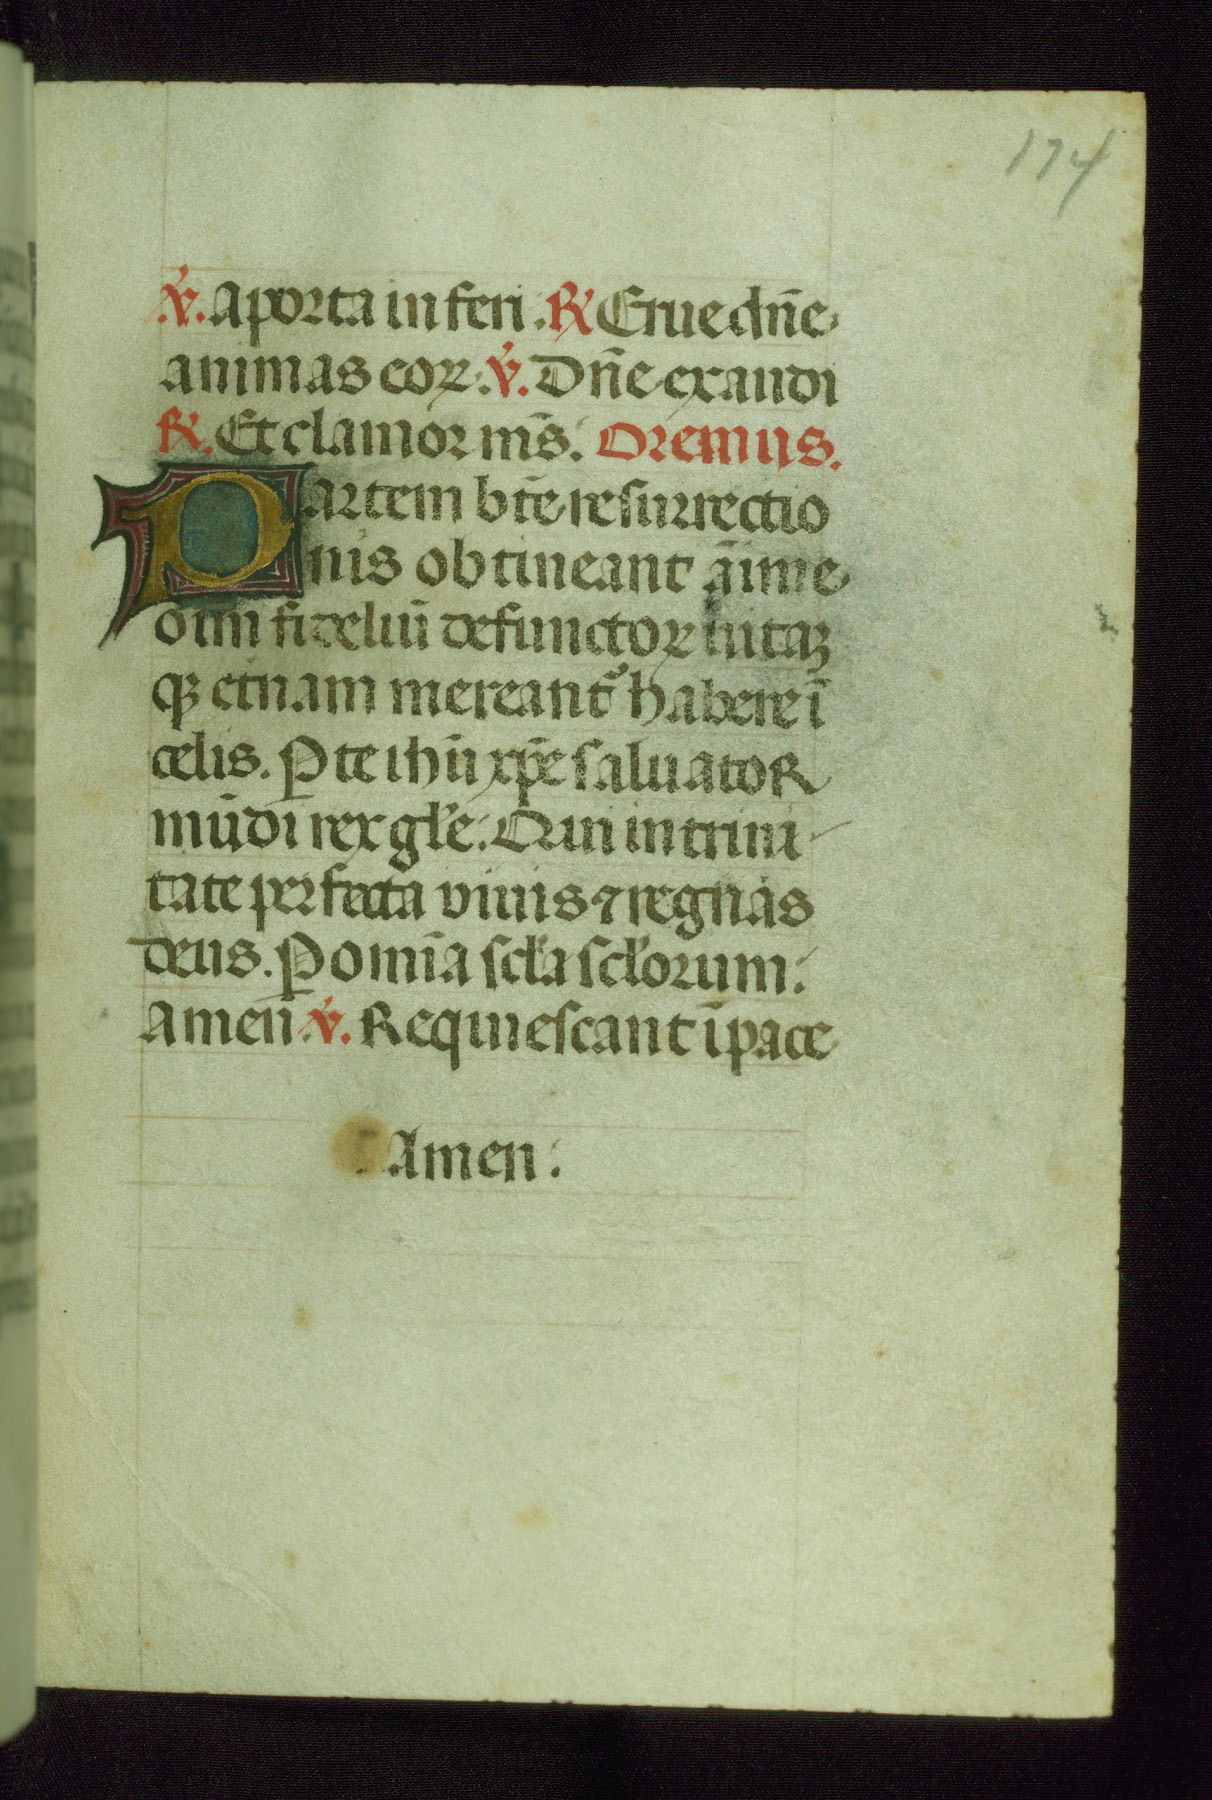 174
℣. A porta inferi. ℟ Erue dn̄e
animas eoꝝ. ℣. Dn̄e exaudi
℟. Et clamor ms̄. Oremus.
Partem bt̄e resurrectio
nis obtineant āime
om̄i fideliū defunctoꝝ uitaꝫ
qꝫ etnam mereant᷑ habere ī
celis. P te ihū xp̄e saluator
mūdi rex gl̄e. Qui in trini-
tate perfecta viuis ⁊ regnas
deus. P om̄ia scl̄a scl̄orum.
Amen ℣. Requiescant ī pace
Amen.